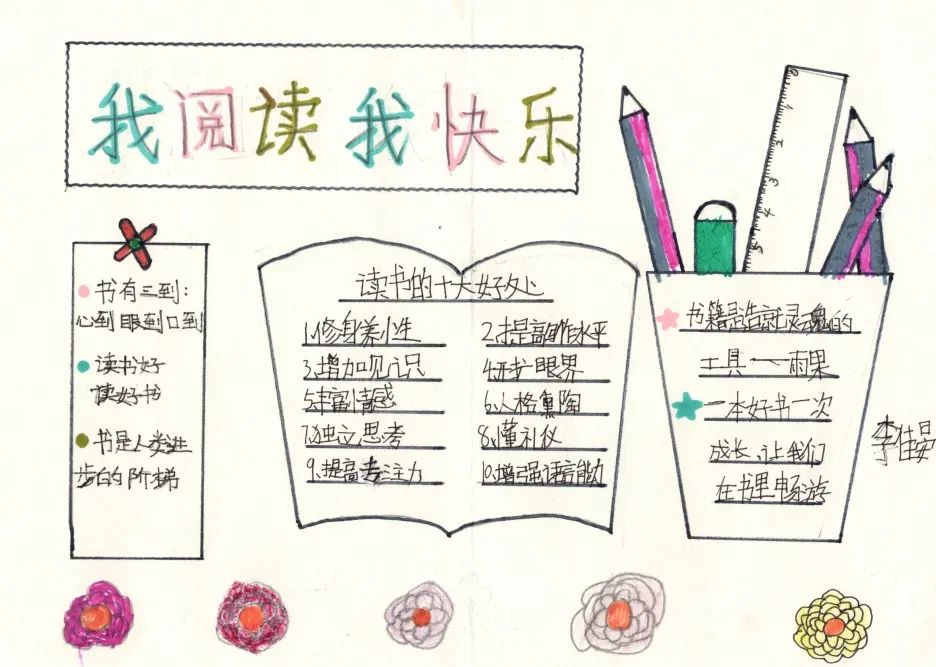 我阅读我快乐
书有三到：
心到眼到口到
读书好
读好书
书是人类进
步的阶梯
读书的十大好处
1.修身养性
2.提高写作水平
3.增加见识
4.开扩眼界
5.丰富情感
6.人格熏陶
7.独立思考
8.懂礼仪
9.提高专注力
10.增强语言能力
1
2
3
4
5
书籍是造就灵魂的
工具——雨果
一本好书一次
成长、让我们
在书里畅游
李佳